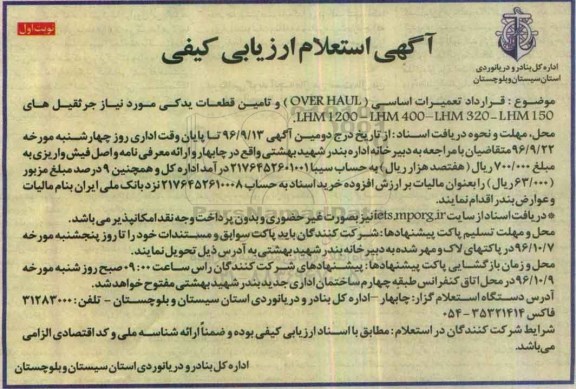 نوبت اول
آگهی استعلام ارزیابی کیفی
اداره کل بنادر و دریانوردی
استان سیستان و بلوچستان
موضوع : قرارداد تعمیرات اساسی (OVER HAUL) و تامین قطعات یدکی مورد نیاز جرثقیل های
LHM 1200 – LHM 400– LHM 320– LHM 150.
محل، مهلت و نحوه دریافت اسناد: از تاریخ درج دومین آگهی ۹۶/۹/۱۳ تا پایان وقت اداری روز چهارشنبه مورخه
۹۶/۹/۲۲ متقاضیان با مراجعه به دبیرخانه اداره بندر شهید بهشتی واقع در چابهار و ارائه معرفی نامه و اصل فیش واریزی به
مبلغ ۷۰۰/۰۰۰ ریال (هفتصد هزار ریال) به حساب سیبا ۲۱۷۶۴۵۲۶۰۱۰۰۱ درآمد اداره کل و همچنین ۹ درصد مبلغ مزبور
(۶۳/۰۰۰ ریال) را بعنوان مالیات بر ارزش افزوده خرید اسناد به حساب ۲۱۷۶۴۵۲۶۱۰۰۰۸ نزد بانک ملی ایران بنام مالیات
و عوارض بندر اقدام نمایند.
* دریافت اسناد از سایت iets.mporg.ir نیز بصورت غیر حضوری و بدون پرداخت وجه نقد امکانپذیر می باشد.
محل و مهلت تسلیم پاکت پیشنهادها: شرکت کنندگان باید پاکت سوابق و مستندات خود را تا روز پنجشنبه مورخه
۹۶/۱۰/۷ در پاکتهای لاک و مهر شده به دبیرخانه بندر شهید بهشتی به آدرس ذیل تحویل نمایند.
محل و زمان بازگشایی پاکت پیشنهادها: پیشنهادهای شرکت کنندگان راس ساعت ۰۹:۰۰ صبح روز شنبه مورخه
۹۶/۱۰/۹ در محل اتاق کنفرانس طبقه چهارم ساختمان اداری جدید بندر شهید بهشتی مفتوح خواهد شد.
آدرس دستگاه استعلام گزار: چابهار – اداره کل بنادر و دریانوردی استان سیستان و بلوچستان – تلفن: ۳۱۲۸۳۰۰۰
فاکس ۳۵۳۲۱۴۱۴ - ۰۵۴
شرایط شرکت کنندگان در استعلام: مطابق با اسناد ارزیابی کیفی بوده و ضمناً ارائه شناسه ملی و کد اقتصادی الزامی
می باشد.
اداره کل بنادر و دریانوردی استان سیستان و بلوچستان